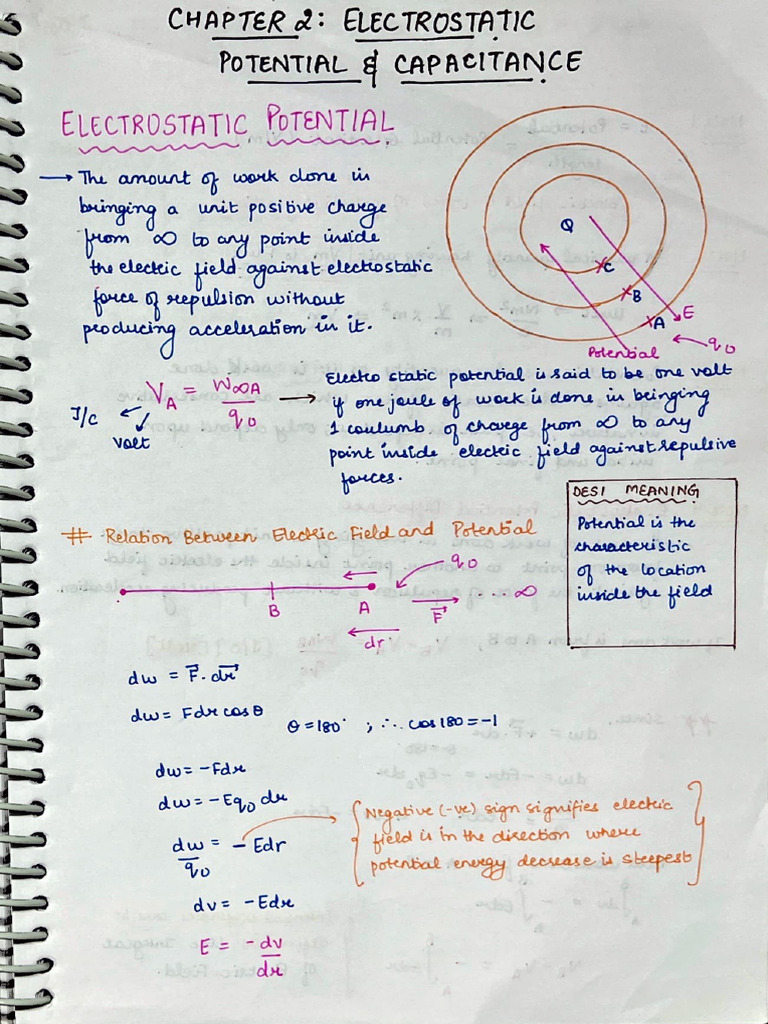 CHAPTER 2: ELECTROSTATIC
POTENTIAL & CAPACITANCE
ELECTROSTATIC POTENTIAL
→ The amount of work done in
bringing a unit positive charge
from ∞ to any point inside
the electric field against electrostatic
force of repulsion without
producing acceleration in it.
Q
C
B
A
E
Potential
q0
VA = W∞A / q0 →
J/C
Volt
Electro static potential is said to be one volt
if one joule of work is done in bringing
1 coulumb of charge from ∞ to any
point inside electric field against repulsive
forces.
DESI MEANING
Potential is the
characteristic
of the location
inside the field
# Relation Between Electric Field and Potential
q0
B
A
F
∞
dr
dw = F⃗. dr⃗
dw = Fdr cosθ
θ = 180° ; ∴ cos 180 = -1
dw = -Fdr
dw = -Eq0 dr
dw / q0 = - Edr
{Negative (-ve) sign signifies electric
field is in the direction where
potential energy decrease is steepest}
dv = -Edr
E = -dv / dr